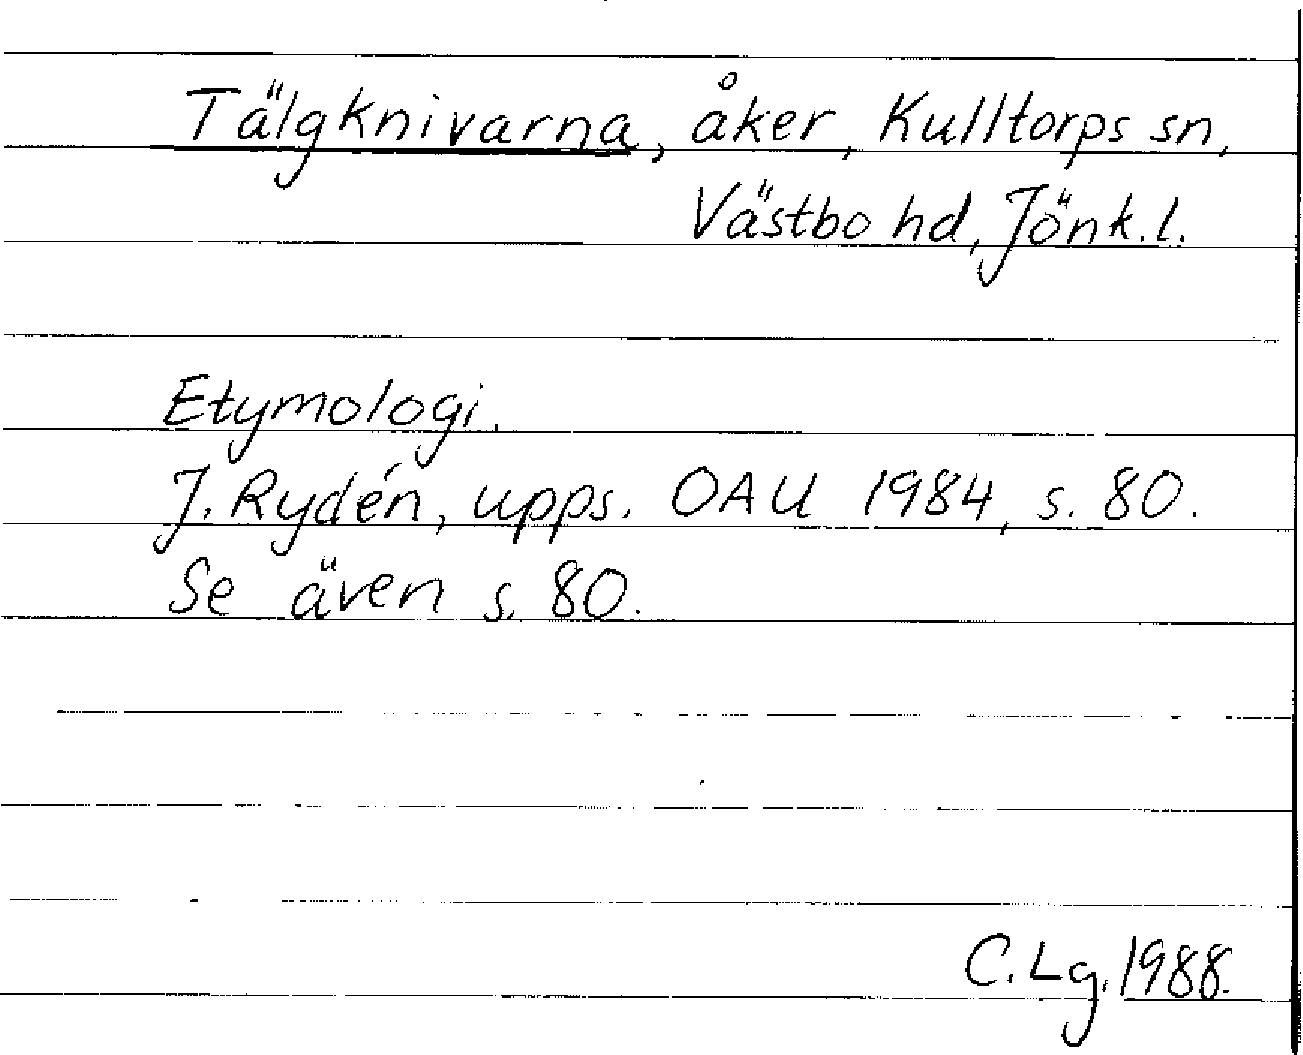 Tälgknivarna, åker, Kulltorps sn,
Västbo hd, Jönk.l.
Etymologi.
J. Rydén, upps. OAU 1984, s. 80.
Se även s. 80.
C. Lg. 1988.